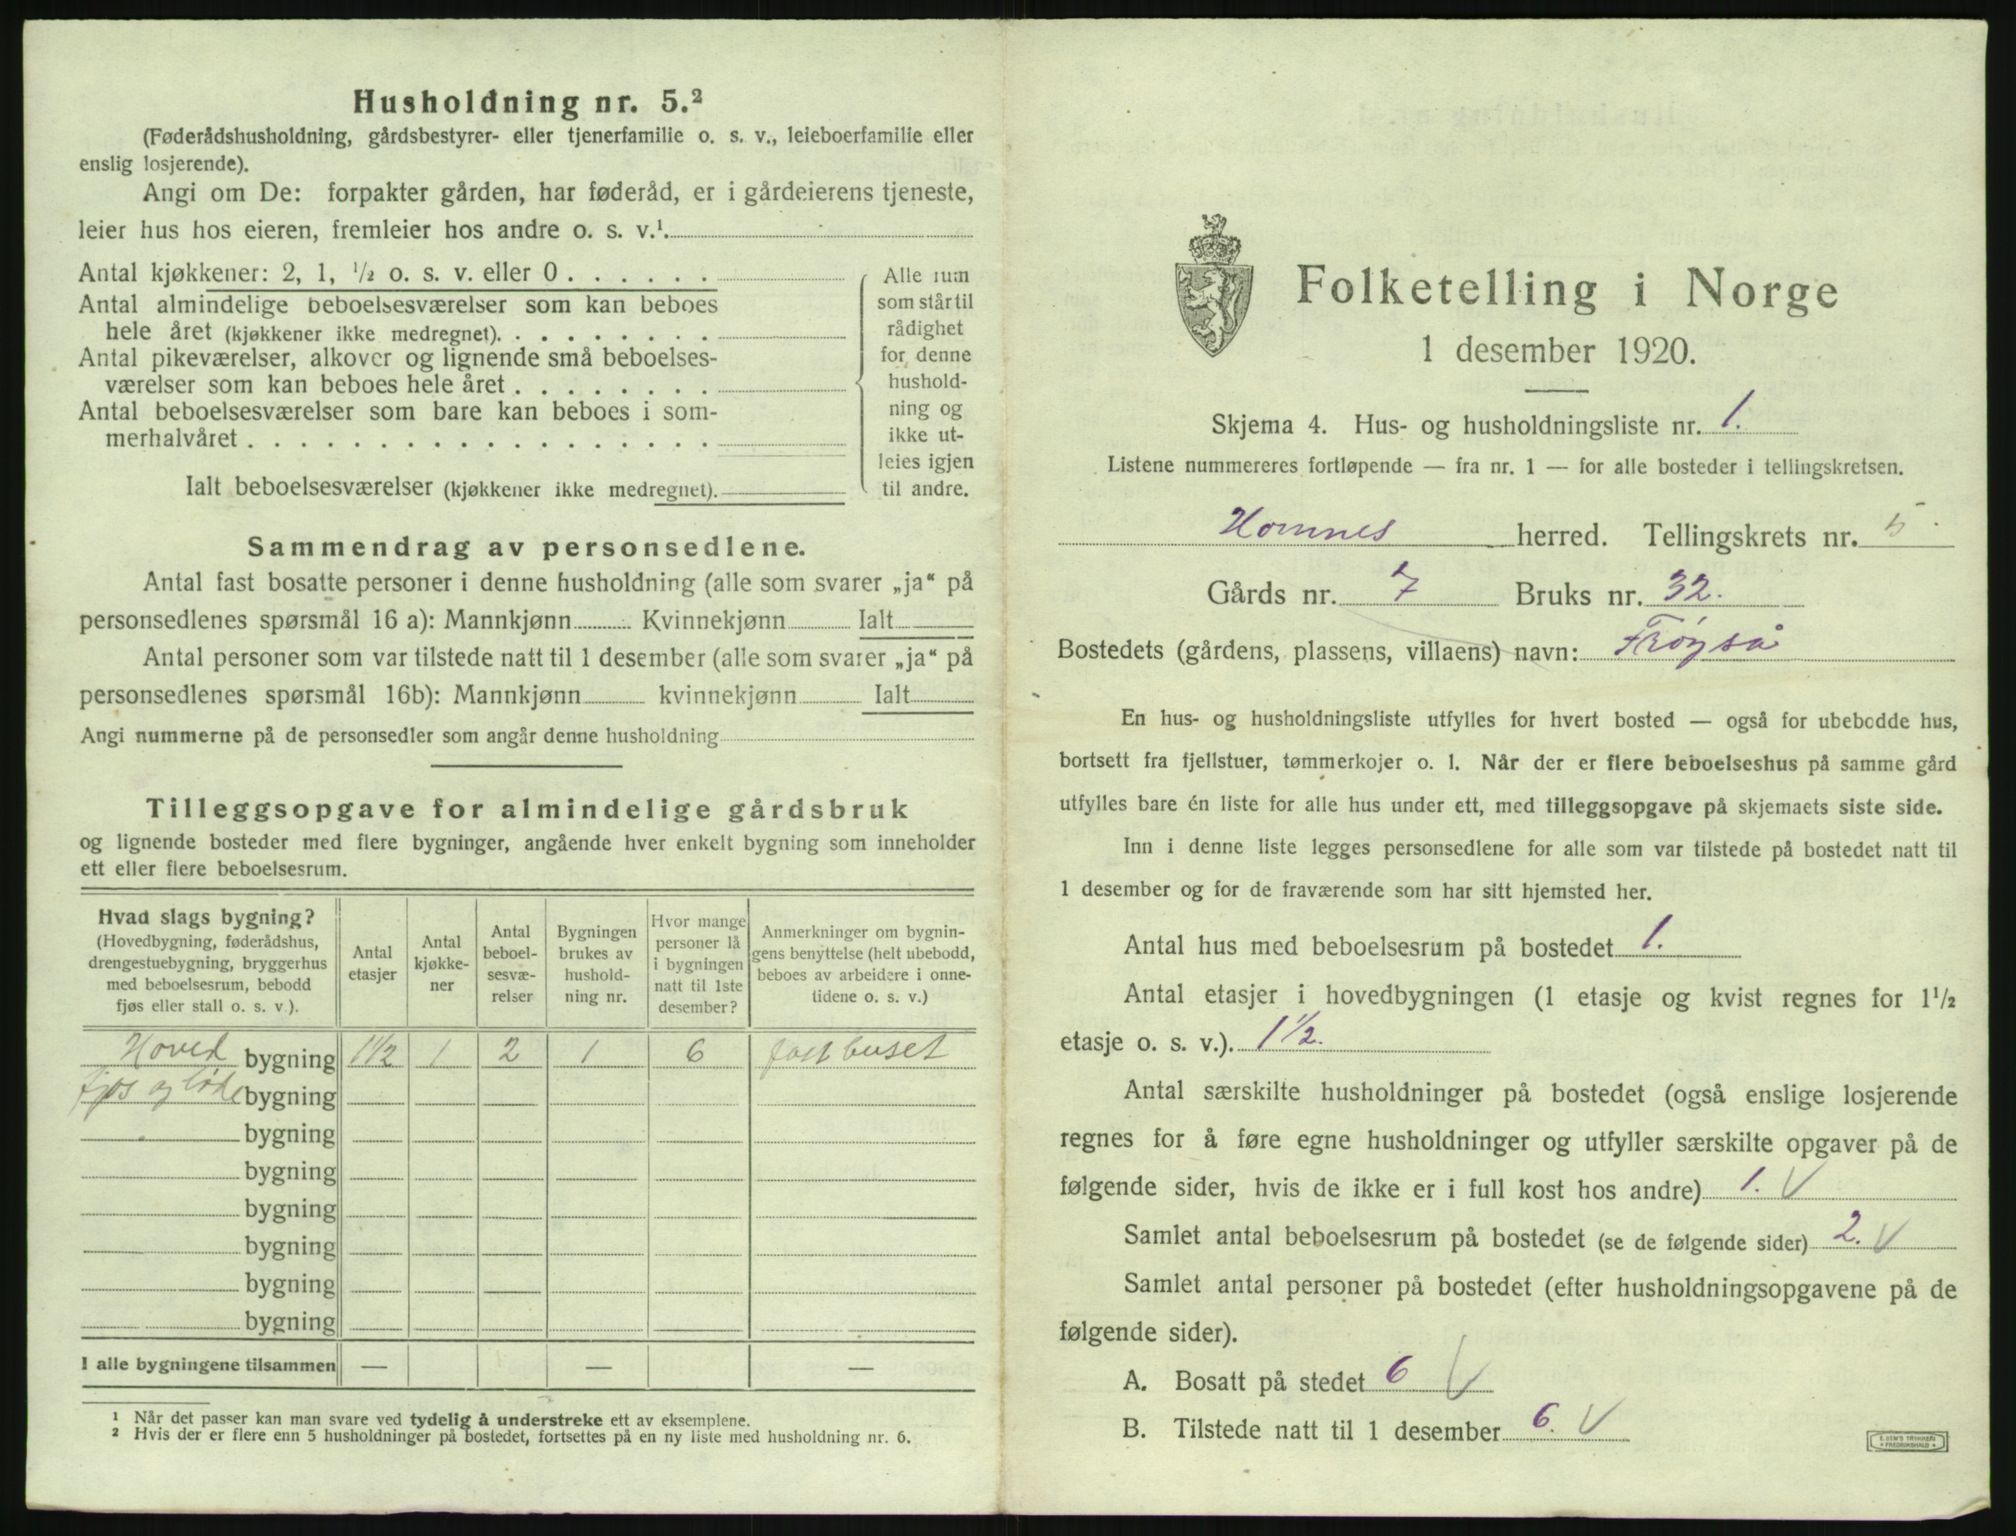 Husholdning nr. 5.²
(Føderådshusholdning, gårdsbestyrer- eller tjenerfamilie o. s. v., leieboerfamilie eller
enslig losjerende).
Angi om De: forpakter gården, har føderåd, er i gårdeierens tjeneste,
leier hus hos eieren, fremleier hos andre o. s. v.¹.
Antal kjøkkener: 2, 1, ½ o. s. v. eller 0 . . . . . .
Antal almindelige beboelsesværelser som kan beboes
hele året (kjøkkener ikke medregnet). . . . . . . . .
Antal pikeværelser, alkover og lignende små beboelses-
værelser som kan beboes hele året . . . . . . . .
Antal beboelsesværelser som bare kan beboes i som-
merhalvåret . . . . . . . . . . . . . . . . . .
Ialt beboelsesværelser (kjøkkener ikke medregnet).
Alle rum
som står til
rådighet
for denne
hushold-
ning og
ikke ut-
leies igjen
til andre.
Sammendrag av personsedlene.
Antal fast bosatte personer i denne husholdning (alle som svarer „ja“ på
personsedlenes spørsmål 16 a): Mannkjønn Kvinnekjønn Ialt
Antal personer som var tilstede natt til 1 desember (alle som svarer „ja“ på
personsedlenes spørsmål 16b): Mannkjønn kvinnekjønn Ialt
Angi nummerne på de personsedler som angår denne husholdning
Tilleggsopgave for almindelige gårdsbruk
og lignende bosteder med flere bygninger, angående hver enkelt bygning som inneholder
ett eller flere beboelsesrum.
Hvad slags bygning?
(Hovedbygning, føderådshus,
drengestuebygning, bryggerhus
med beboelsesrum, bebodd
fjøs eller stall o. s. v.).
Antal
etasjer
Antal
kjøkke-
ner
Antal
beboel-
sesvæ-
relser
Bygningen
brukes av
hushold-
ning nr.
Hvor mange
personer lå
i bygningen
natt til 1ste
desember?
Anmerkninger om bygnin-
gens benyttelse (helt ubebodd,
beboes av arbeidere i onne-
tidene o. s. v.)
Hoved bygning 1½ 1 2 1 6 fast buset
fjøs og løde bygning
bygning
bygning
bygning
bygning
bygning
bygning
I alle bygningene tilsammen — — —
¹ Når det passer kan man svare ved tydelig å understreke ett av eksemplene.
² Hvis der er flere enn 5 husholdninger på bostedet, fortsettes på en ny liste med husholdning nr. 6.
Folketelling i Norge
1 desember 1920.
Skjema 4. Hus- og husholdningsliste nr. 1.
Listene nummereres fortløpende — fra nr. 1 — for alle bosteder i tellingskretsen.
Hornnes herred. Tellingskrets nr. 5.
Gårds nr. 7 Bruks nr. 32.
Bostedets (gårdens, plassens, villaens) navn: Frøyså
En hus- og husholdningsliste utfylles for hvert bosted — også for ubebodde hus,
bortsett fra fjellstuer, tømmerkojer o. l. Når der er flere beboelseshus på samme gård
utfylles bare én liste for alle hus under ett, med tilleggsopgave på skjemaets siste side.
Inn i denne liste legges personsedlene for alle som var tilstede på bostedet natt til
1 desember og for de fraværende som har sitt hjemsted her.
Antal hus med beboelsesrum på bostedet 1.
Antal etasjer i hovedbygningen (1 etasje og kvist regnes for 1½
etasje o. s. v.). 1½.
Antal særskilte husholdninger på bostedet (også enslige losjerende
regnes for å føre egne husholdninger og utfyller særskilte opgaver på de
følgende sider, hvis de ikke er i full kost hos andre) 1. V
Samlet antal beboelsesrum på bostedet (se de følgende sider) 2. V
Samlet antal personer på bostedet (efter husholdningsopgavene på de
følgende sider).
A. Bosatt på stedet 6 V
B. Tilstede natt til 1 desember 6. V